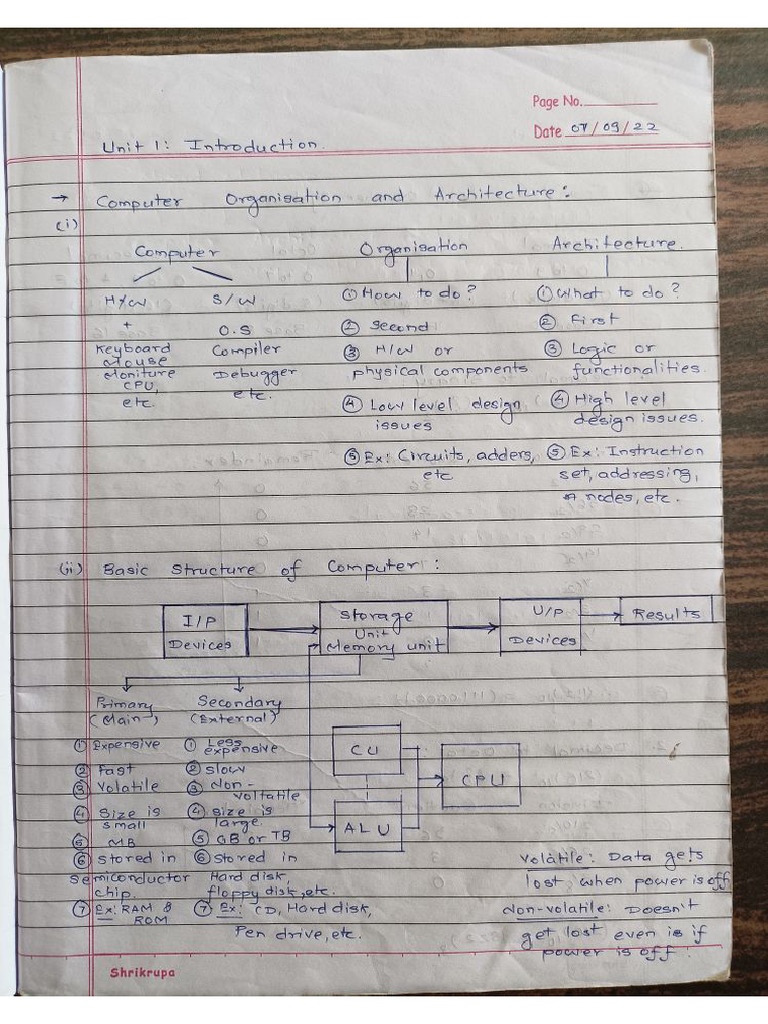 Page No.
Date 07/09/22
Unit 1: Introduction.
→ Computer Organisation and Architecture:
(i)
Computer Organisation Architecture.
H/W S/W ① How to do? ① What to do?
+ O.S ② Second ② First
Keyboard Compiler ③ H/W or ③ Logic or
Mouse
Moniture Debugger physical components functionalities.
CPU, etc.
etc. ④ Low level design ④ High level
issues design issues.
⑤ Ex: Circuits, adders, ⑤ Ex: Instruction
etc set, addressing,
nodes, etc.
(ii) Basic Structure of Computer:
I/P Devices
Storage Unit
Memory unit
U/P Devices
Results
Primary Secondary
(Main) (External)
① Expensive ① Less expensive
② Fast ② Slow
③ Volatile ③ Non-voltatile
④ Size is small ④ Size is large.
⑤ MB ⑤ GB or TB
⑥ Stored in ⑥ Stored in
Semiconductor Hard disk,
chip. floppy disk, etc.
⑦ Ex: RAM & ⑦ Ex: CD, Hard disk,
ROM Pen drive, etc.
CU
CPU
ALU
Volatile: Data gets
lost, when power is off
Non-volatile: Doesn't
get lost even is if
power is off.
Shrikrupa